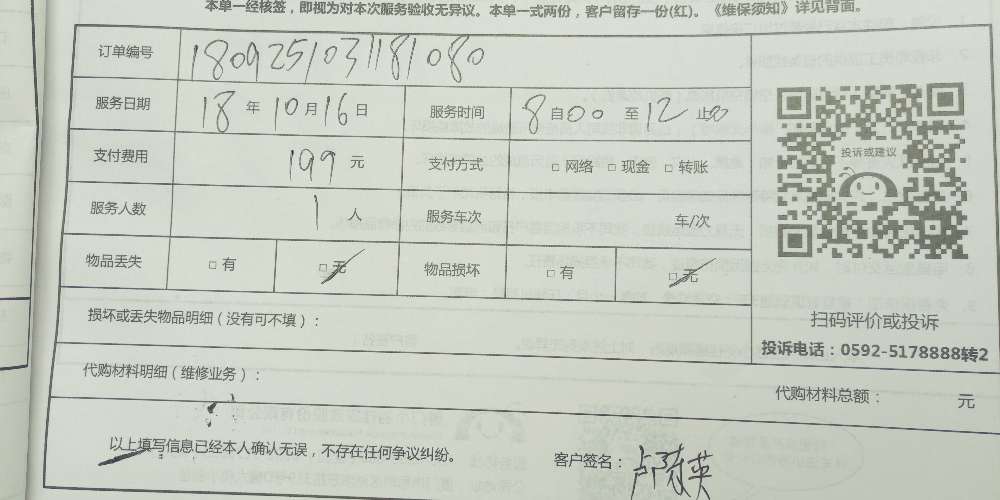 本单一经核签，即视为对本次服务验收无异议。本单一式两份，客户留存一份(红)。《维保须知》详见背面。
订单编号 180925103118 080
服务日期 18 年 10 月 16 日 服务时间 8 自 00 至 12 止 00
支付费用 199 元 支付方式 □ 网络 □ 现金 □ 转账
服务人数 1 人 服务车次 车/次
物品丢失 □ 有 □ 无 物品损坏 □ 有 □ 无
投诉或建议
损坏或丢失物品明细（没有可不填）：
扫码评价或投诉
投诉电话：0592-5178888转2
代购材料明细（维修业务）：
代购材料总额： 元
以上填写信息已经本人确认无误，不存在任何争议纠纷。
客户签名：卢惠英